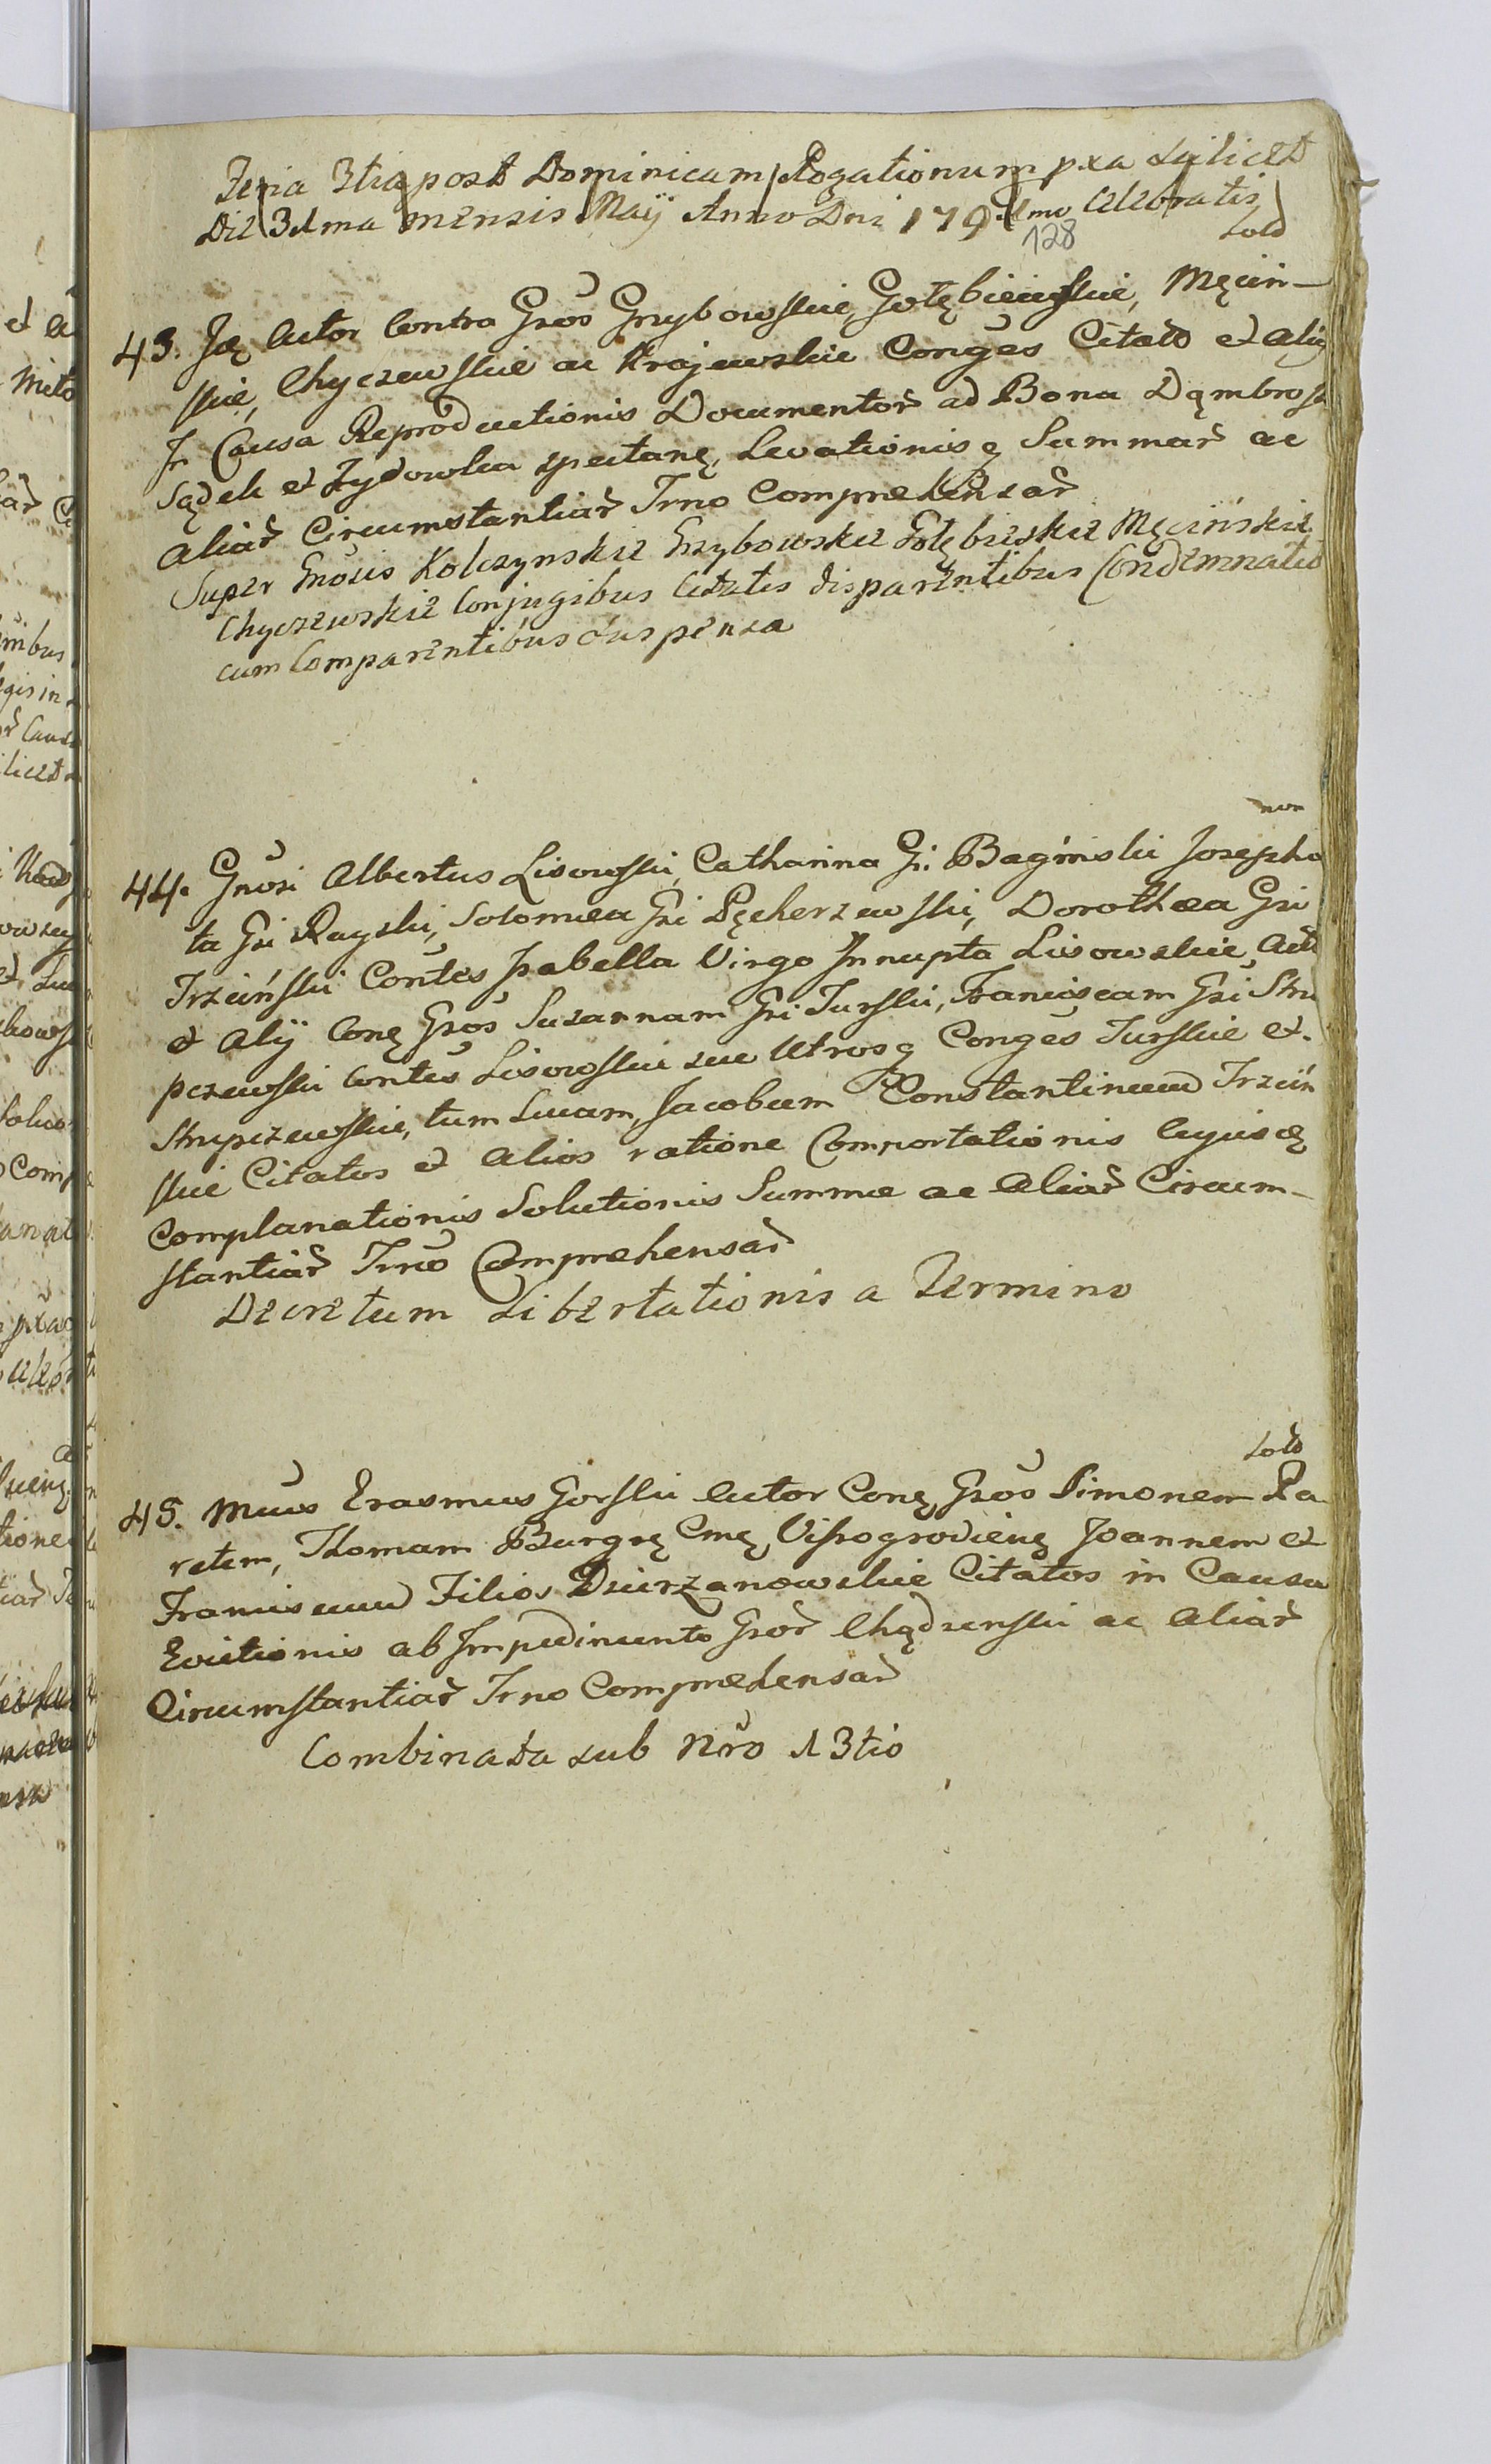 Feria 3tia post Dominicam Rogationum pxa scilicet
Die 31ma mensis Maÿ Anno Dni 1791mo Celebratis
128
Sold
43. Jdę Actor Contra Gsōs Grzybowskie, Gołębiewskie, Męcin-
skie, Chyczewskie ac Krajewskie Conges Citato et Alÿ
Jn Causa Reproductionis Documentor̃ ad Bona Dąmbrosk
Sądek et Zydowka spectanę, Levationisq Summar̃ ac
Aliar̃ Circumstantiar̃ Trno Comprehensar̃
Super Gnōsis Kolczynskie Grzybowskie Gołębieskie Męcińskie
Chyczewskie Conjugibus Citatis disparentibus Condemnatio
cum Comparentibus suspensa
non
44. Gnōsi Albertus Lisowski, Catharina Gsi Bagiński Josepha
ta Gsi Rayski, Solomea Gsi Pęcherzewski, Dorothea Gsi
Trzciński Contēs Jsabella Virgo Jnnupta Lisowskie, Act
et Alÿ Conę Gsōs Susannam Gsi Turski, Franciscam Gsi Stru
pczewski Contēs Lisowskie sue Utrosq Congēs Turskie et
Strupczewskie, tum Lucam, Jacobum Constantinum Trzciń
skie Citatos et Alios ratione Comportationis Cujusq
Complanationis Solutionis Summæ ac Aliar̃ Circum-
stantiar̃ Trnō Comprehensar̃
Decretum Libertationis a Termino
Sold
45. Mcus Erasmus Gorski Actor Conę Gsōs Simonem Pa
retem, Thomam Burgrę Cmę Vissogrodienę Joannem et
Franciscum Filios Dzierzanowskie Citatos in Causa
Evictionis ab Jmpedimento Gsor̃ Chądzenski ac Aliar̃
Circumstantiar̃ Trno Comprehensar̃
Combinata sub Nrō 13tio